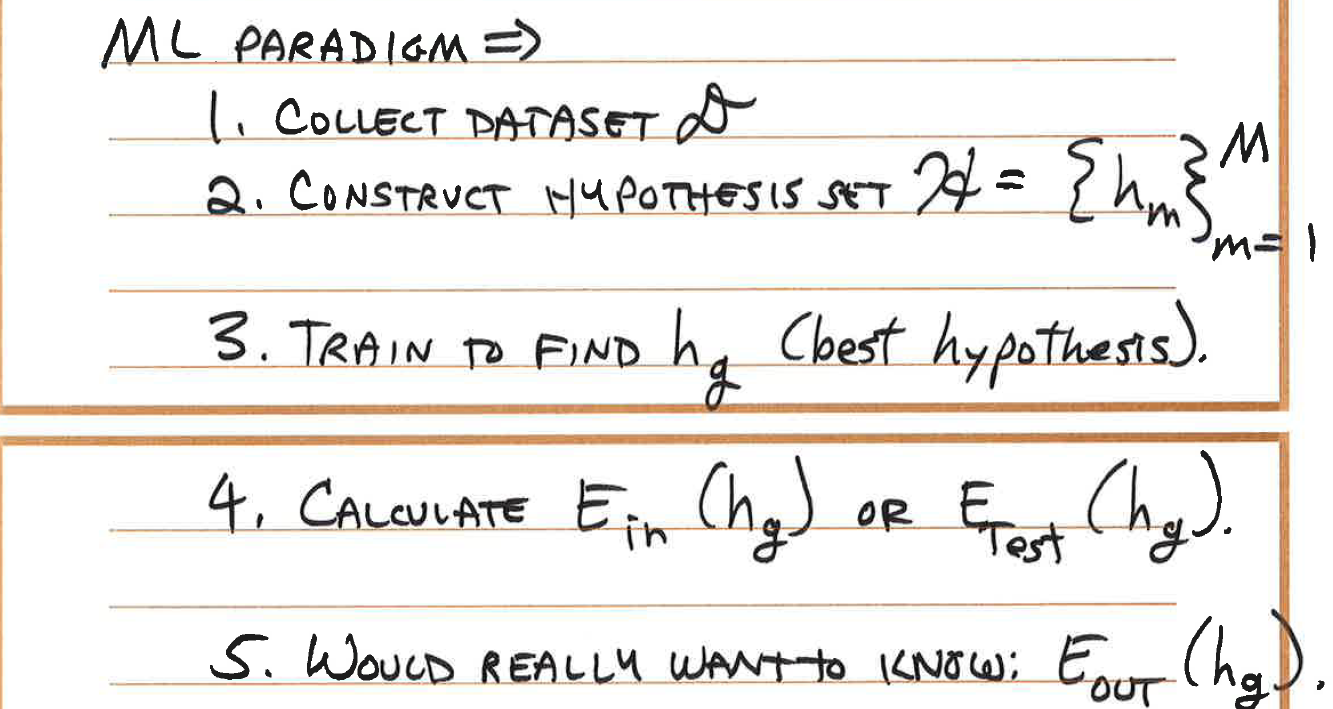 ML PARADIGM ⇒
1. COLLECT DATASET 𝒟
2. CONSTRUCT HYPOTHESIS SET ℋ = {hₘ}ᴹₘ₌₁
3. TRAIN TO FIND h_g (best hypothesis).
4. CALCULATE E_in (h_g) OR E_Test (h_g).
5. WOULD REALLY WANT to KNOW: E_OUT (h_g).